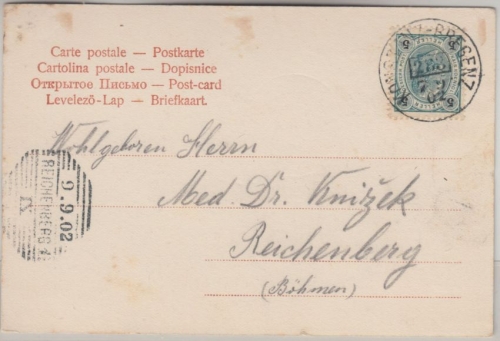 Carte postale — Postkarte
Cartolina postale — Dopisnice
Открытое Письмо — Post-card
Levelező-Lap — Briefkaart.
5 5
5 5
BREGENZ
Wohlgeboren Herrn
Med. Dr. Knižek
Reichenberg
(Böhmen)
REICHENBERG
9.9.02
IX